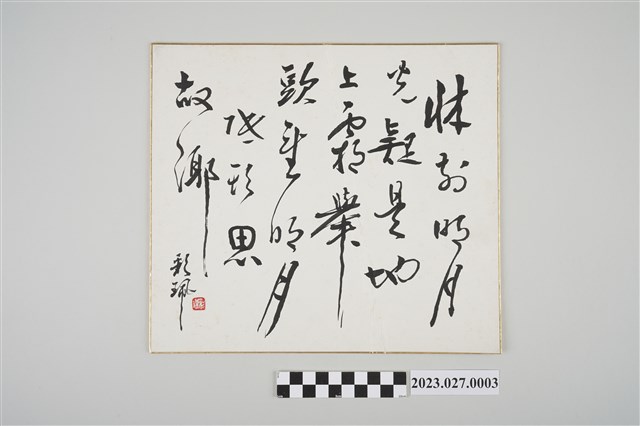 牀前明月
光疑是地
上霜舉
頭望明月
低頭思
故鄉
彩珮
2023.027.0003